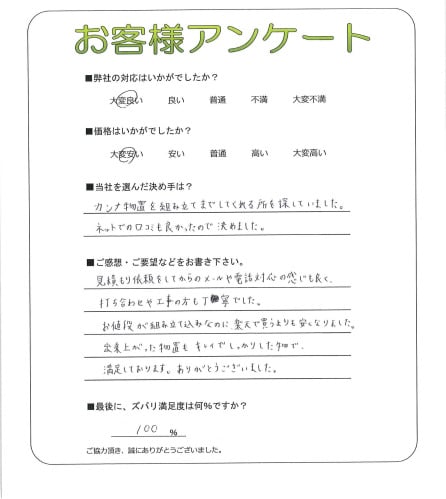 お客様アンケート
■弊社の対応はいかがでしたか？
大変良い 良い 普通 不満 大変不満
■価格はいかがでしたか？
大変安い 安い 普通 高い 大変高い
■当社を選んだ決め手は？
カンナ物置を組み立てまでしてくれる所を探していました。
ネットでの口コミも良かったので決めました。
■ご感想・ご要望などをお書き下さい。
見積もり依頼をしてからのメールや電話対応の感じも良く、
打ち合わせや工事の方も丁寧でした。
お値段が組み立て込みなのに楽天で買うよりも安くなりました。
出来上がった物置もキレイでしっかりした物で、
満足しております。ありがとうございました。
■最後に、ズバリ満足度は何%ですか？
100 %
ご協力頂き、誠にありがとうございました。